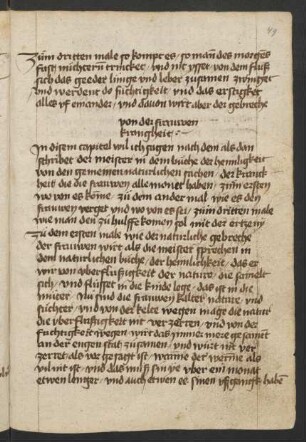 49
Zum dritten male so kompt es so man des morges
fast nuchtern trincket vnd nit ysset von dem fluß
sich das geeder linge vnd leber zusamen zwinget
vnd werdent do fuchtigkeit vnd das erstigket
alles vff einander vnd dauon wirt aber der gebreche
von der frauwen
kranghheit
In disem capitel wil ich sagen nach dem als dan
schribet der meister in dem buche der hemmligkeit
von den gemeinen naturlichen suchen der kranck
heit die die frauwen alle monet haben zum ersten
wo von es kome zu dem ander mal wie es den
frauwen verget vnd wo von es sei zum dritten male
wie man den zu hulffe komen sol mit der ertzeni
Zu dem ersten male wie der naturliche gebreche
der frauwen wirt als die meister sprechen in
dem naturlichen buche der heimlichkeit das er
wir von vberflussigkeit der nature die samelt
sich vnd flusset in die kinde loge das ist in die
muter Nu sind die frauwen kalter nature vnd
fuchter vnd von der kelte wegen mage die natur
die vberflussigkeit nit verzerren vnd von der
fuchtigkeit wegen wirt das ymmer mere gesamt
an der engen stat zusamen vnd wurt nit ver
zerret als vor gesagt ist wanne der werme als
vil nit ist vnd das muß sin ye vber ein monat
etwen lenger vnd auch etwen es sinen vßgangk habe